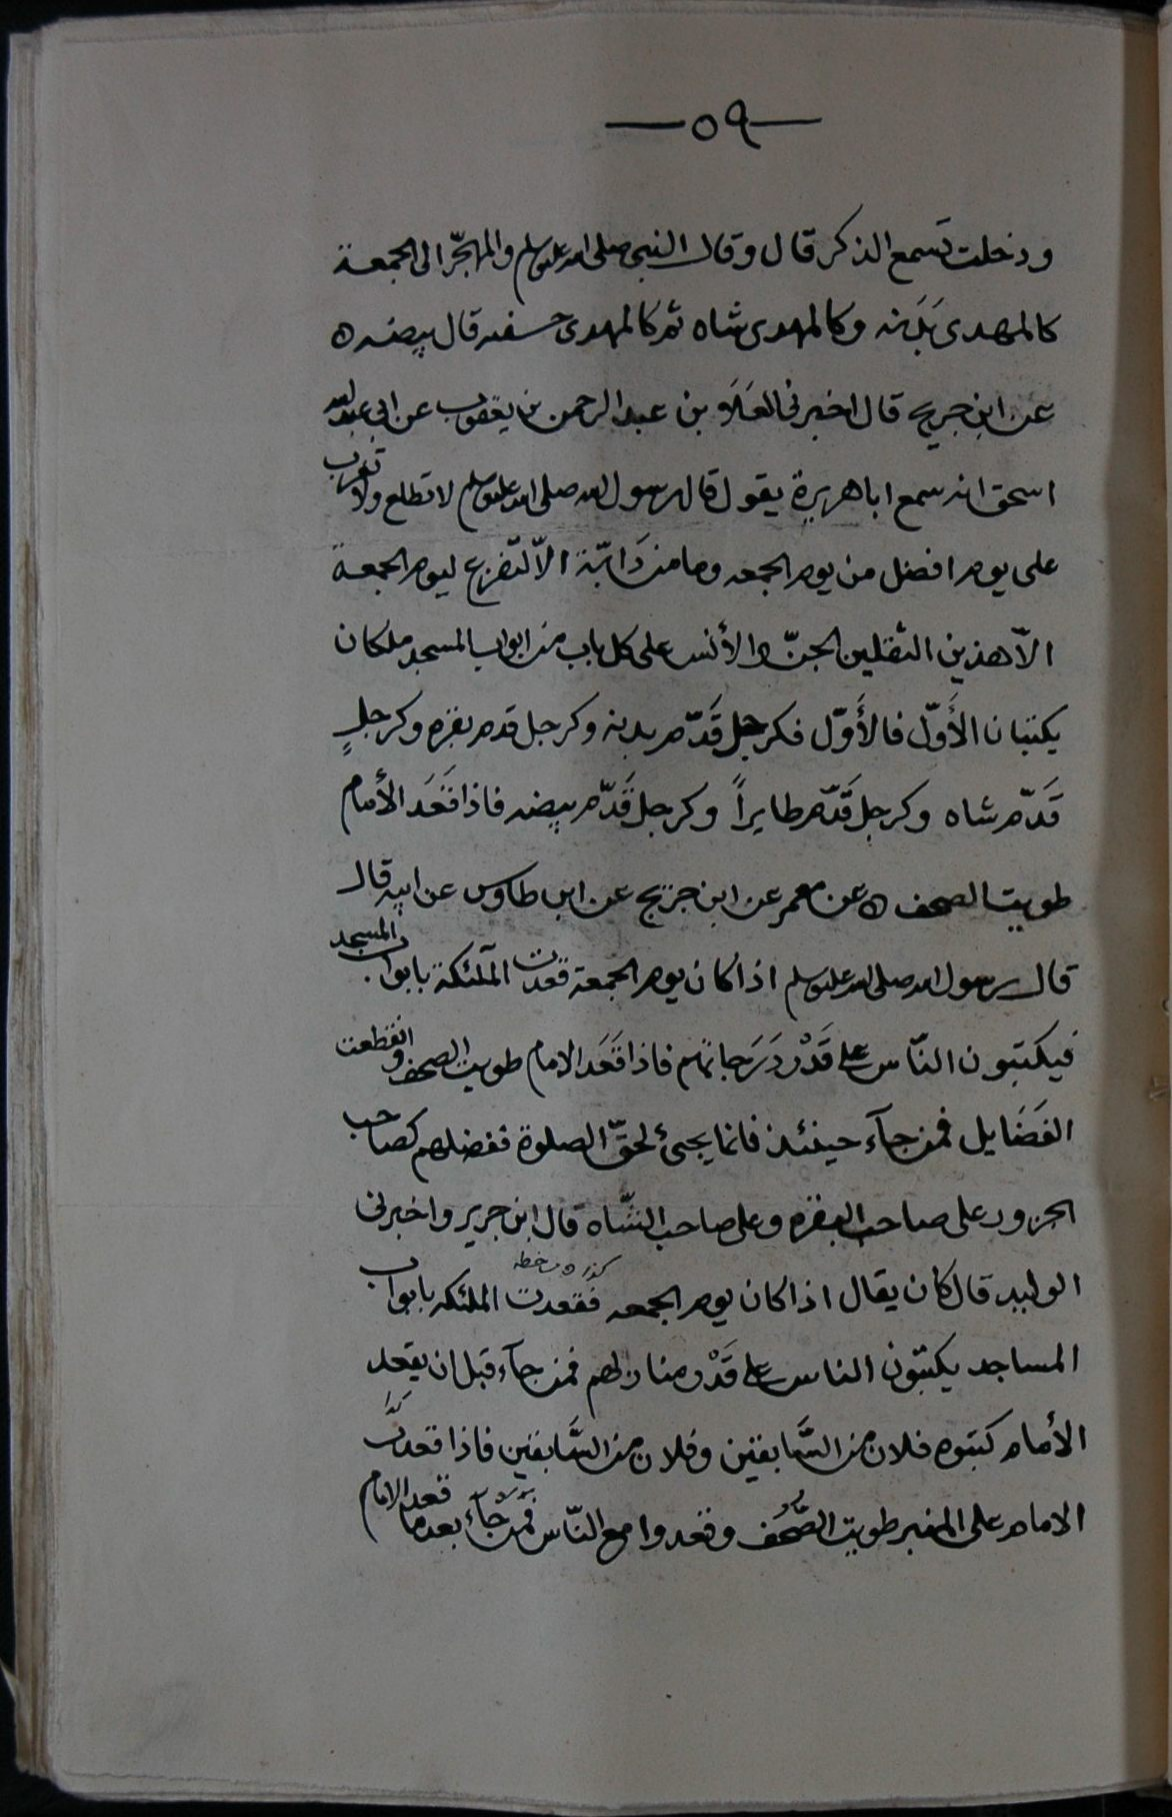 —٥٩—
ودخلت تسمع الذكر قال وقال النبي صلى الله عليه وسلم والمهجّر الى الجمعة
كالمهدى بَدَنه وكالمهدى شاه ثم كالمهدى قال بيضه ه
عن ابن جريج قال اخبرنى العَلَاء بن عبد الرحمن بن يعقوب عن ابى عبد الله
اسحق انه سمع اباهريرة يقول قال رسول الله صلى الله عليه وسلم لا تطلع ولا تغرب
على يوم افضل من يوم الجمعه وما من دَابّة الاّ تفزع ليوم الجمعة
الاّ هذين الثقلين الجنّ والأنس على كل باب من ابواب المسجد ملكان
يكتبان الأَوّل فالأَوّل فكرجل قَدّم بدنه وكرجل قدم بقره وكرجلٍ
قَدّم شاه وكرجل قَدّم طايراً وكرجل قَدّم بيضه فاذا قَعَد الأمام
طويت الصحف ه عن معمر عن ابن جريج عن ابن طاوس عن ابيه قال
قال رسول الله صلى الله عليه وسلم اذا كان يوم الجمعة قعدت الملئكة بابواب المسجد
فيكتبون النّاس على قَدْر دَرَجاتهم فاذا قَعَد الامام طويت الصحف وانقطعت
الفَضَايل فمن جآء حينئذ فانما يجىٔ لحقّ الصلوة ففضلهم كصاحب
الجزور على صاحب البقره وعلى صاحب الشّاه قال ابن جرير واخبرنى
الوليد قال كان يقال اذا كان يوم الجمعه فقعدت الملئكه بابواب
المساجد يكتبون الناس على قَدْر منازلهم فمن جآء قبل ان يقعد
الأمام كتبوه فلان من السَّابقين وفلان من السَّابقين فاذا قعدت
كذا
الامام على المنبر طويت الصُّحُف وقعدوا مع النّاس فَمَنْ جَآء بعد ما قعد الامام